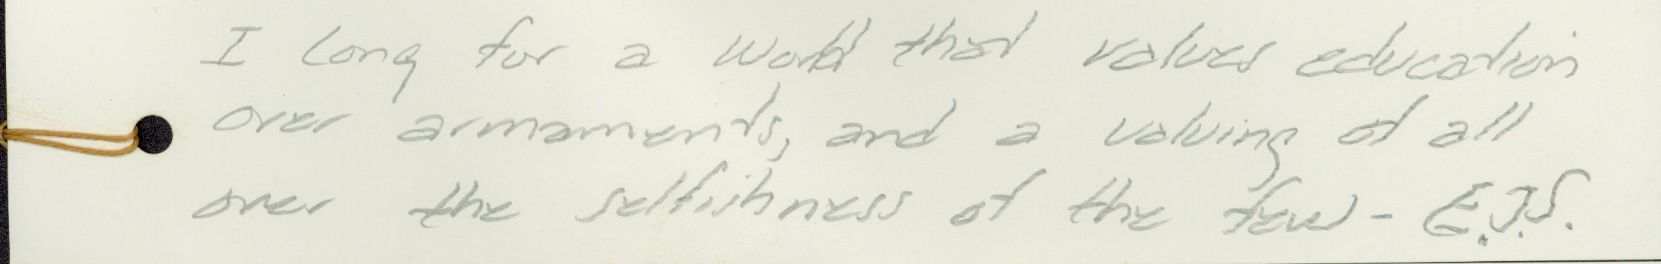 I long for a world that values education
over armaments, and a valuing of all
over the selfishness of the few - E.J.S.